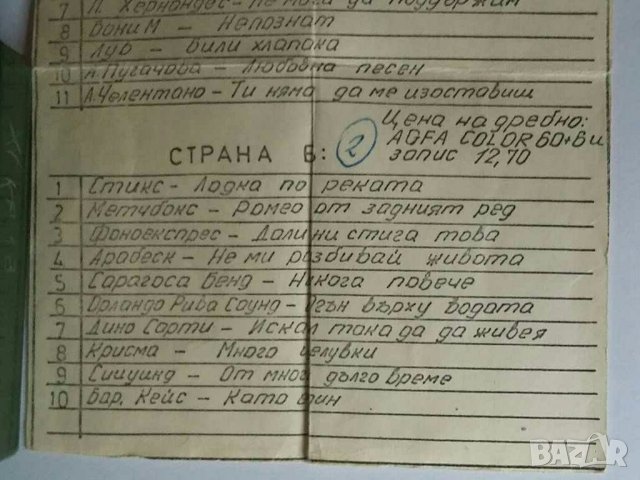 7 Л. Хернандес - Не мога да поддържам
8 Бони М - Непознат
9 Лио - Били хлапака
10 А. Пугачова - Любовна песен
11 А. Челентано - Ти няма да ме изоставиш
Цена на дребно:
AGFA COLOR 60+6 и
запис 12,70
СТРАНА Б: 2
1 Стикс - Лодка по реката
2 Метчбокс - Ромео от задният ред
3 Фоноекспрес - Дали ни стига това
4 Арабеск - Не ми разбивай живота
5 Сарагоса Бенд - Никога повече
6 Орландо Рива Саунд - Огън върху водата
7 Дино Сарти - Искал така да да живея
8 Крисма - Много целувки
9 - От много дълго време
10 Вар. Кейс - Като
BAZAR